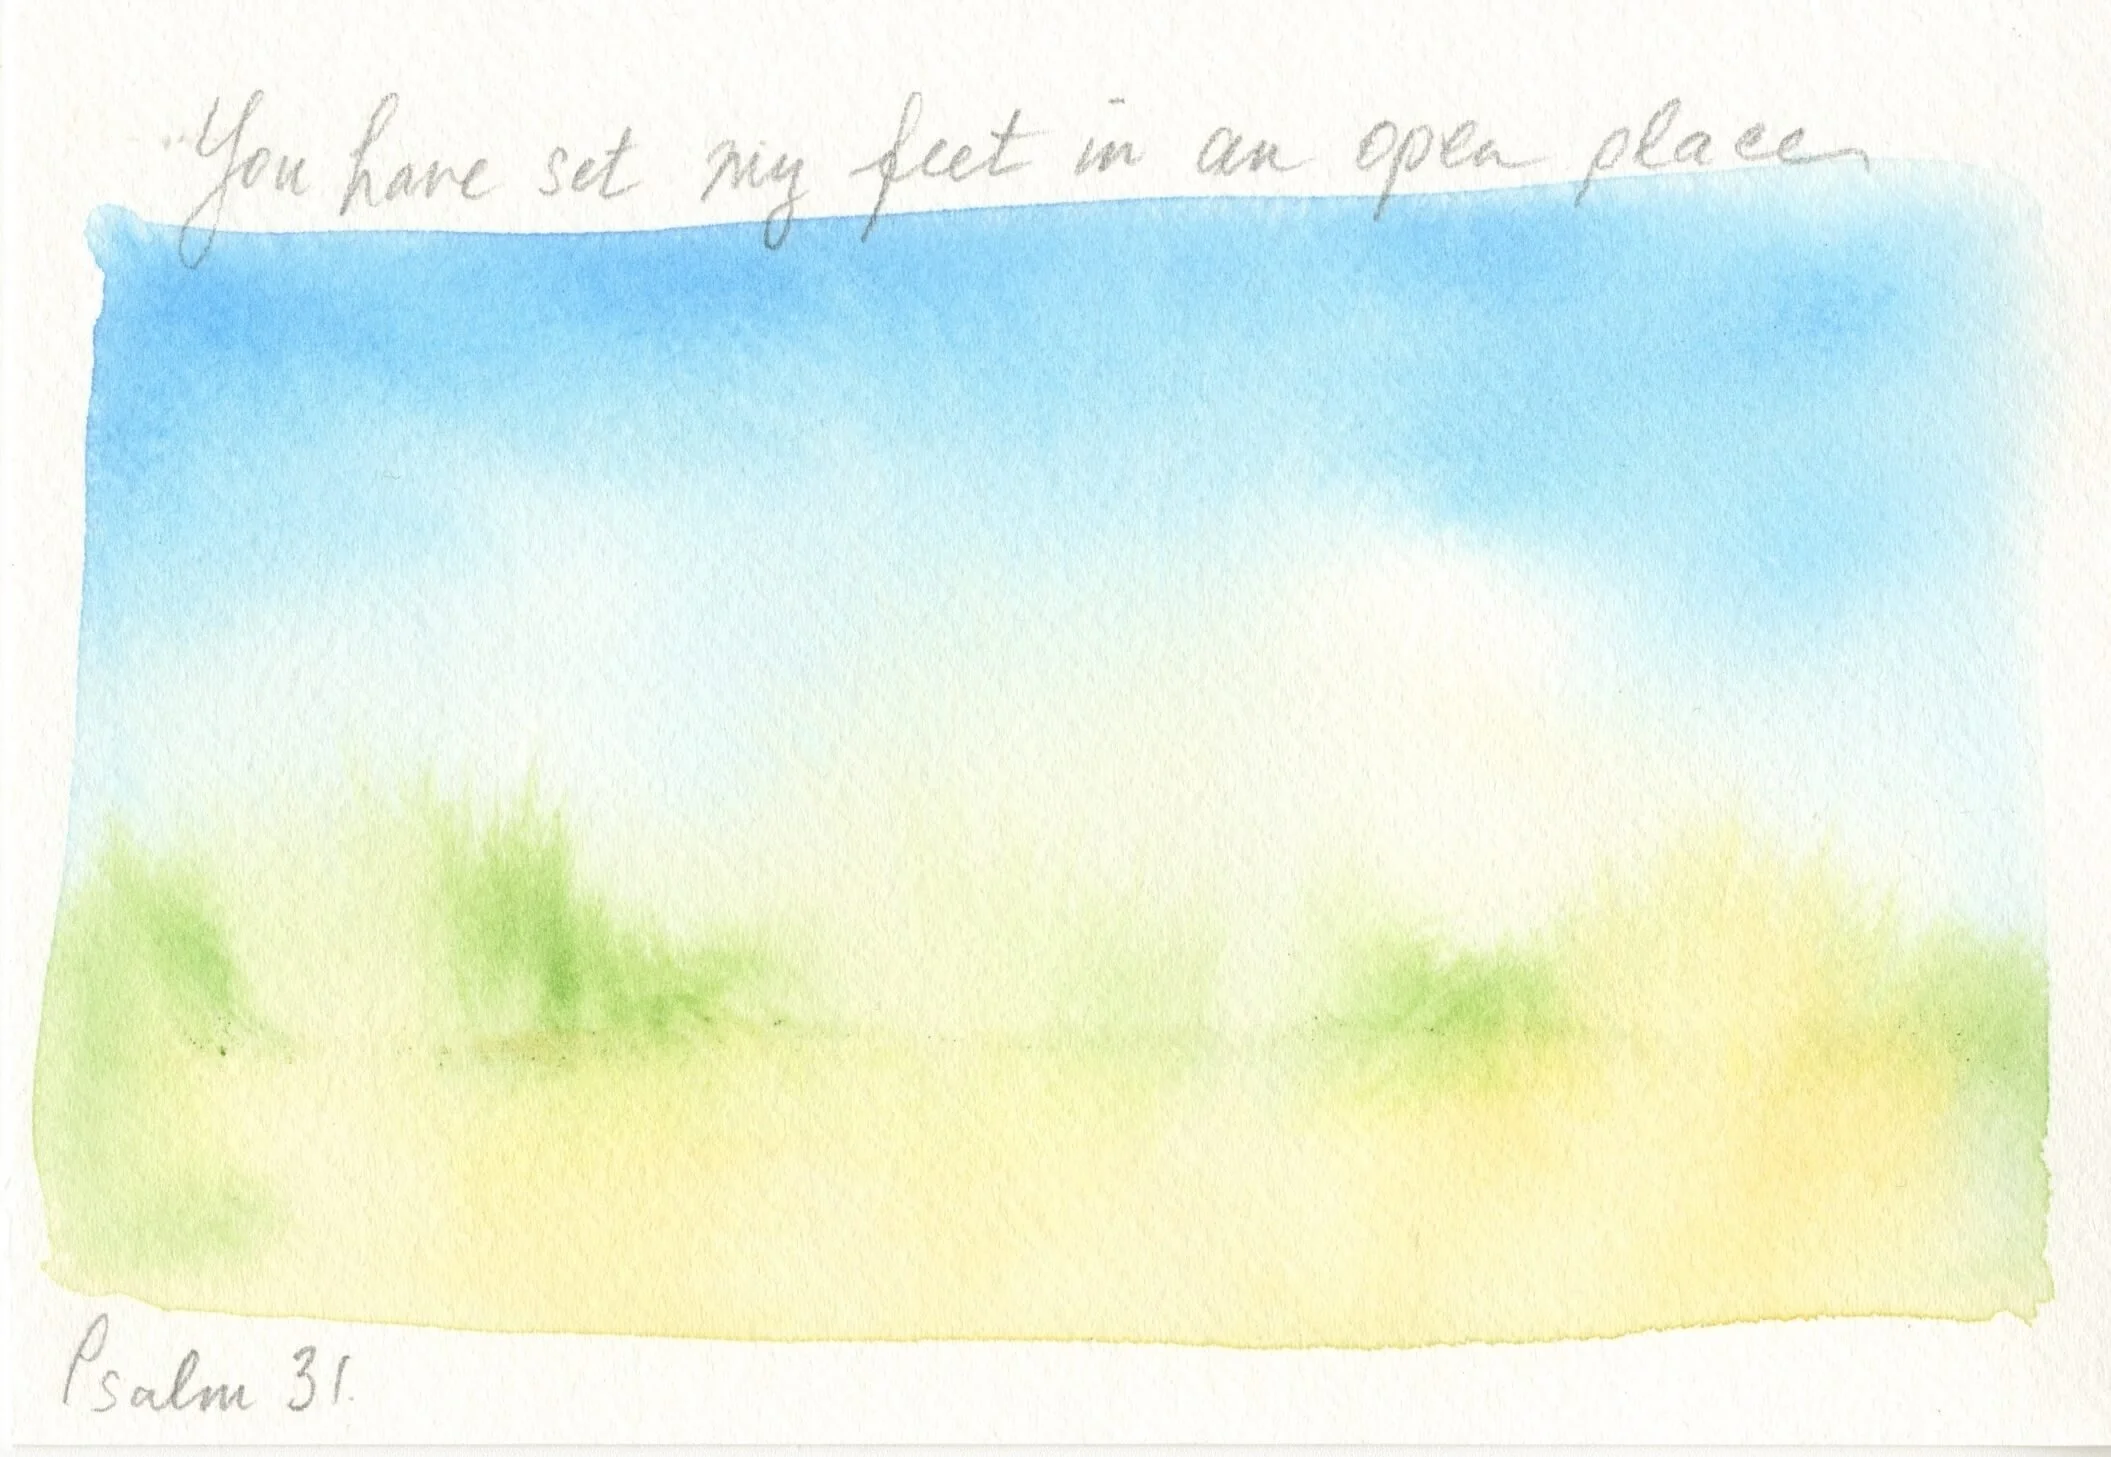 "You have set my feet in an open place
Psalm 31.